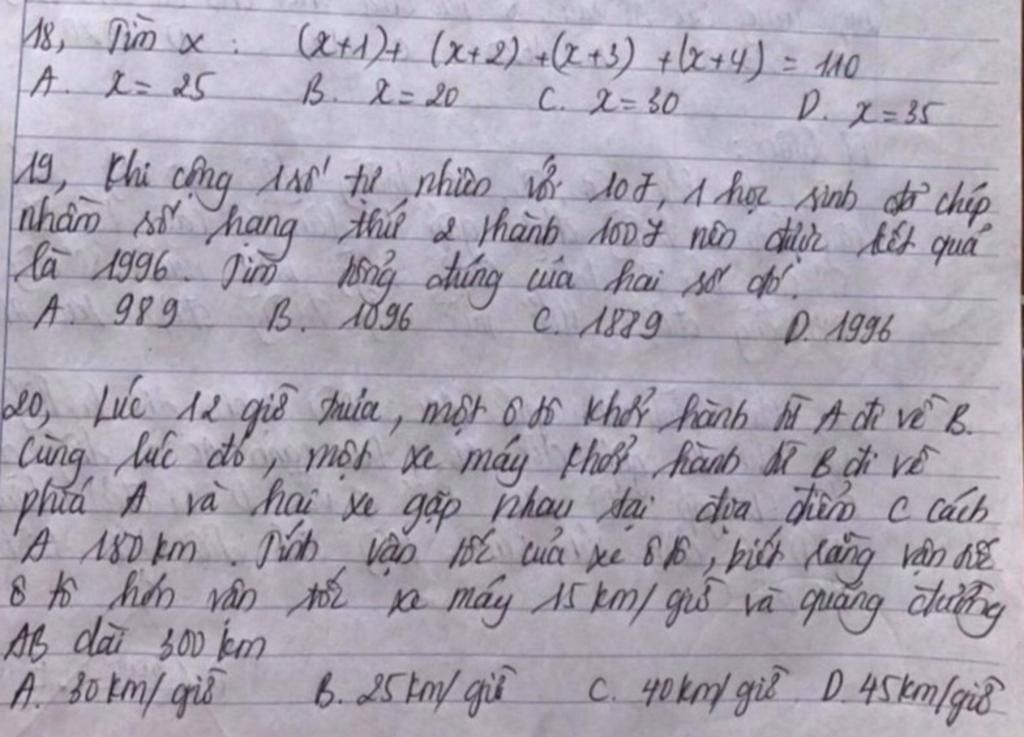 18, Tìm x : (x+1)+ (x+2) +(x+3) +(x+4) = 110
A. x= 25 B. x=20 C. x=30 D. x=35
19, Khi cộng 1 số tự nhiên với 107, 1 học sinh đã chép
nhầm số hạng thứ 2 thành 1007 nên được kết quả
là 1996. Tìm tổng đúng của hai số đó.
A. 989 B. 1096 C. 1889 D. 1996
20, Lúc 12 giờ trưa, một ô tô khởi hành từ A đi về B.
Cùng lúc đó, một xe máy khởi hành từ B đi về
phía A và hai xe gặp nhau tại địa điểm C cách
A 180 km. Tính vận tốc của xe ô tô, biết rằng vận tốc
ô tô hơn vân tốc xe máy 15 km/giờ và quãng đường
AB dài 300 km
A. 30km/giờ B. 25km/giờ C. 40km/giờ D. 45km/giờ